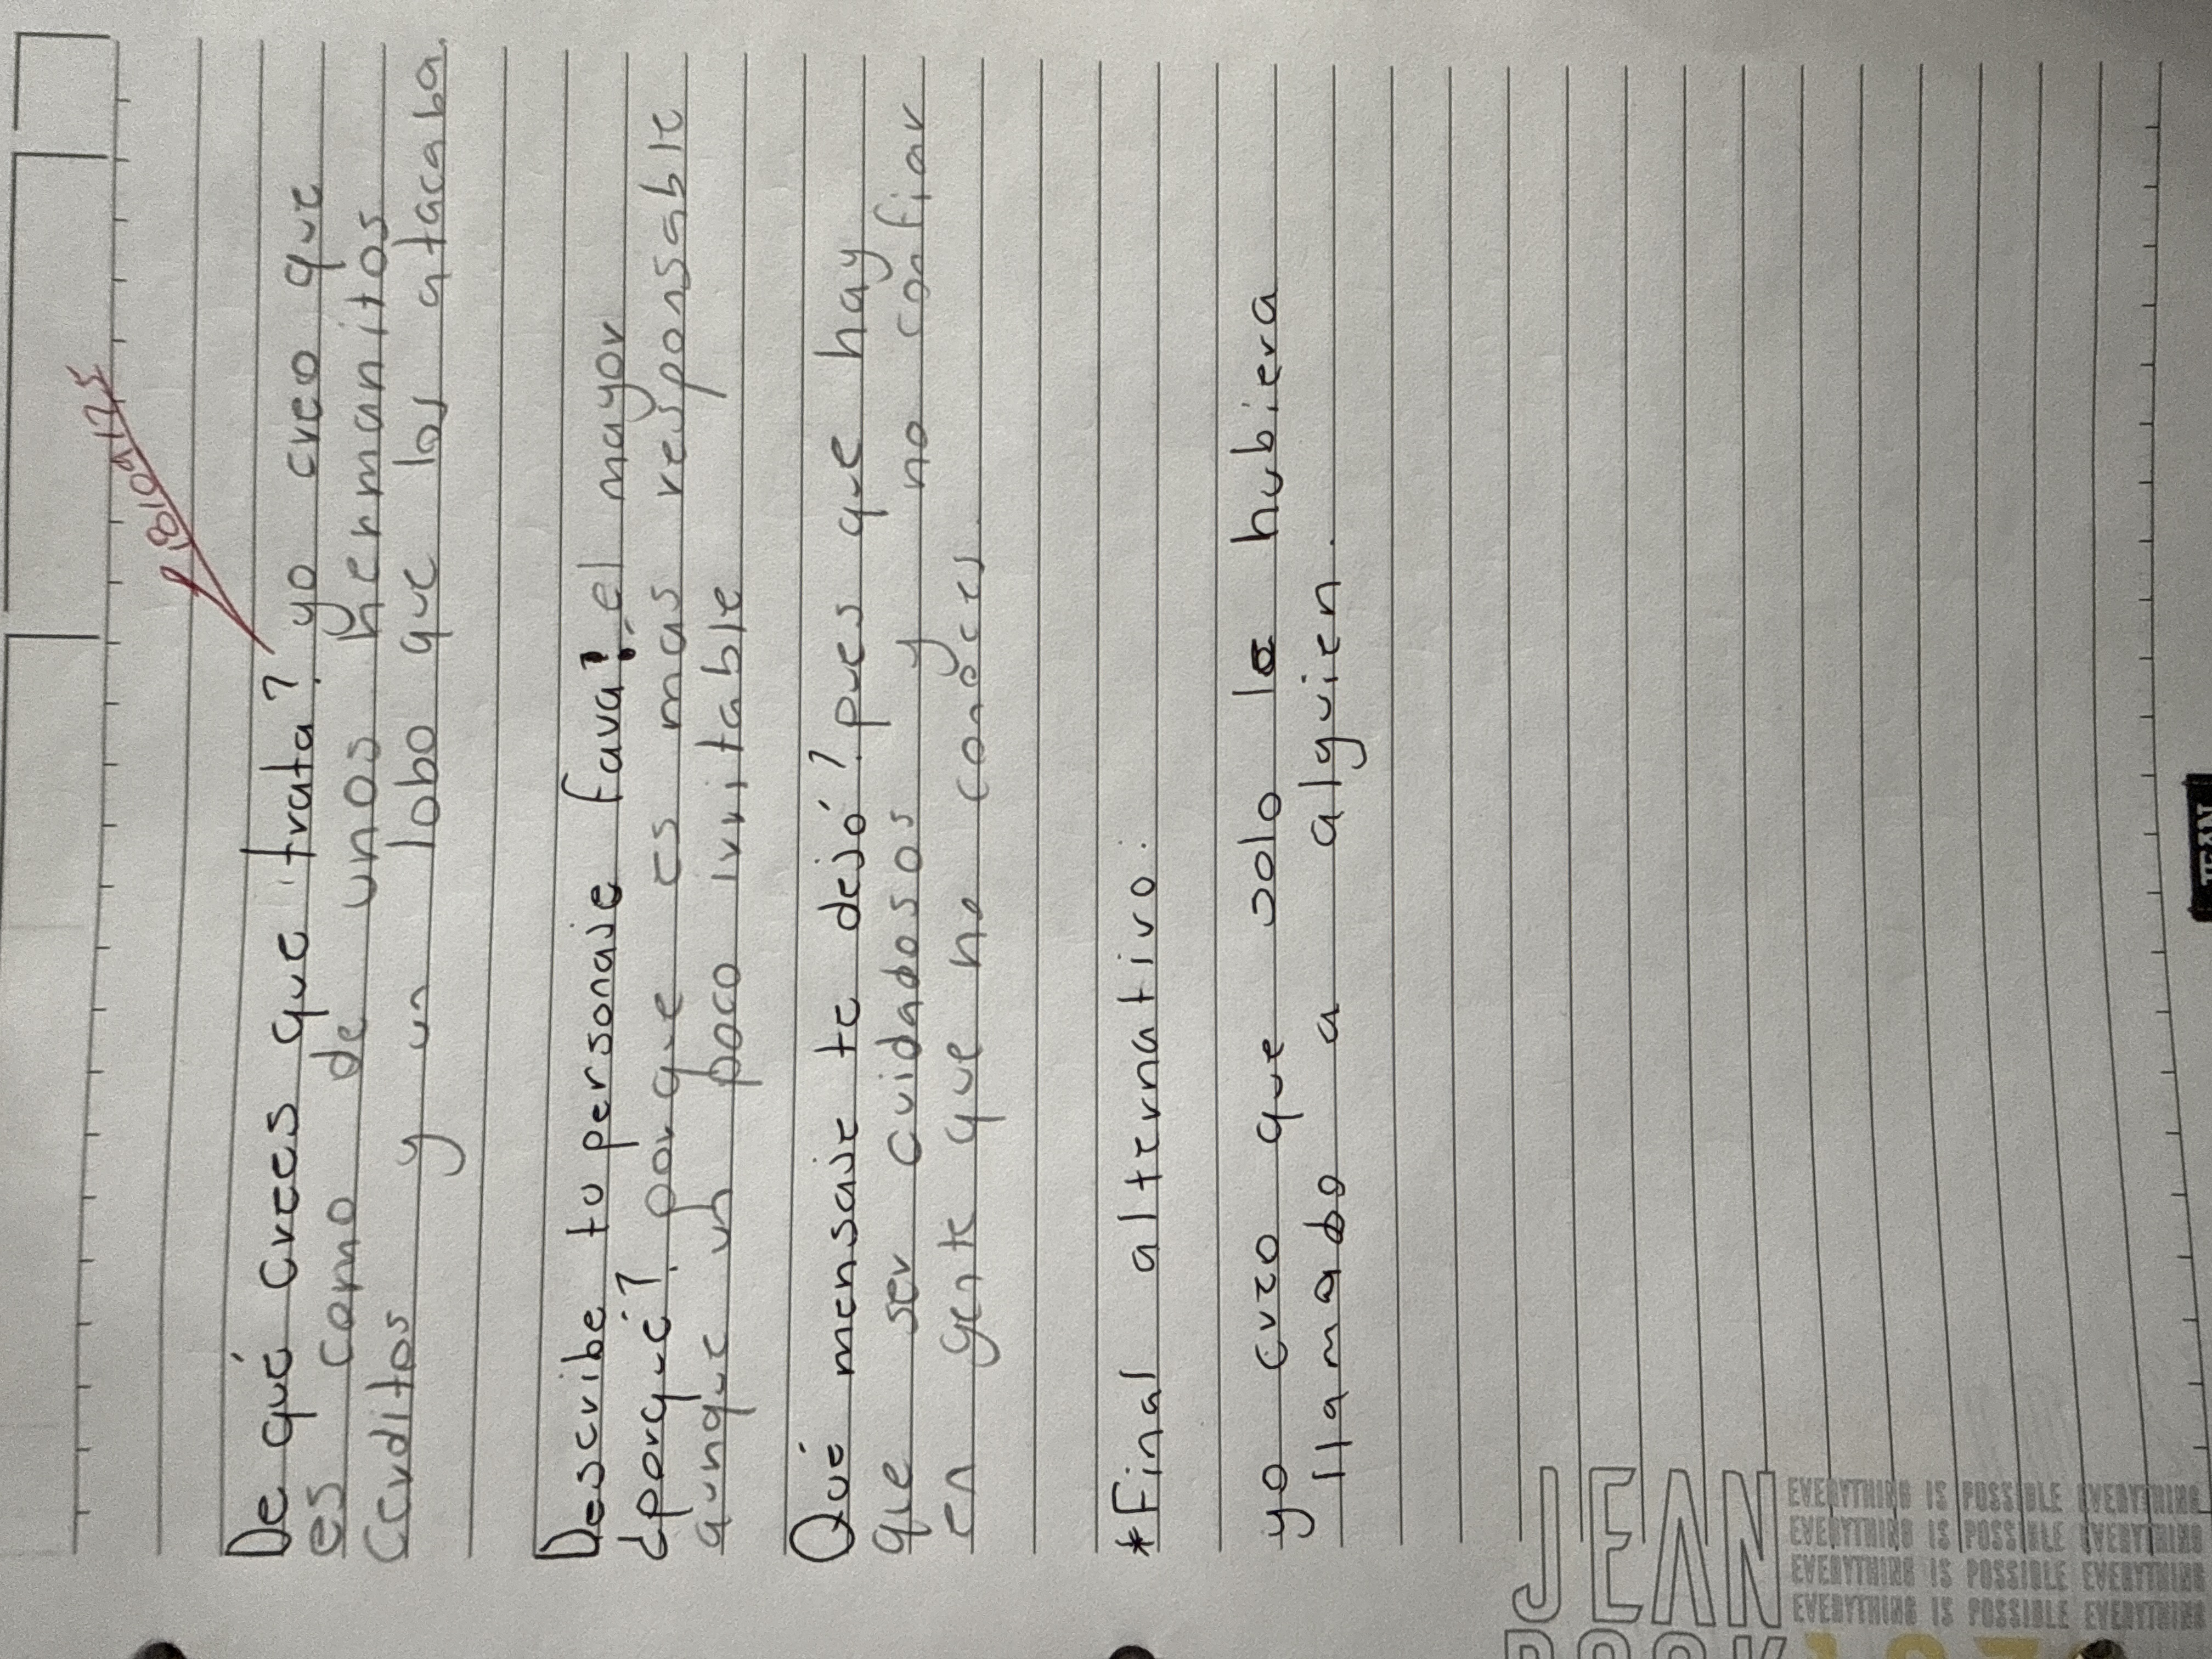 De qué crees que trata? yo creo que
es como de unos hermanitos
Cerditos y un lobo que los atacaba.
Describe tu personaje fava? el mayor
¿porqué? por que es mas responsable
aunque un poco irritable
Qué mensaje te dejó? pues que hay
que ser cuidadosos y no confiar
en gente que no conoces.
*Final alternativo:
yo creo que solo le hubiera
llamado a alguien.
JEAN
BOOK
EVERYTHING IS POSSIBLE EVERYTHING
EVERYTHING IS POSSIBLE EVERYTHING
EVERYTHING IS POSSIBLE EVERYTHING
EVERYTHING IS POSSIBLE EVERYTHING
JEAN